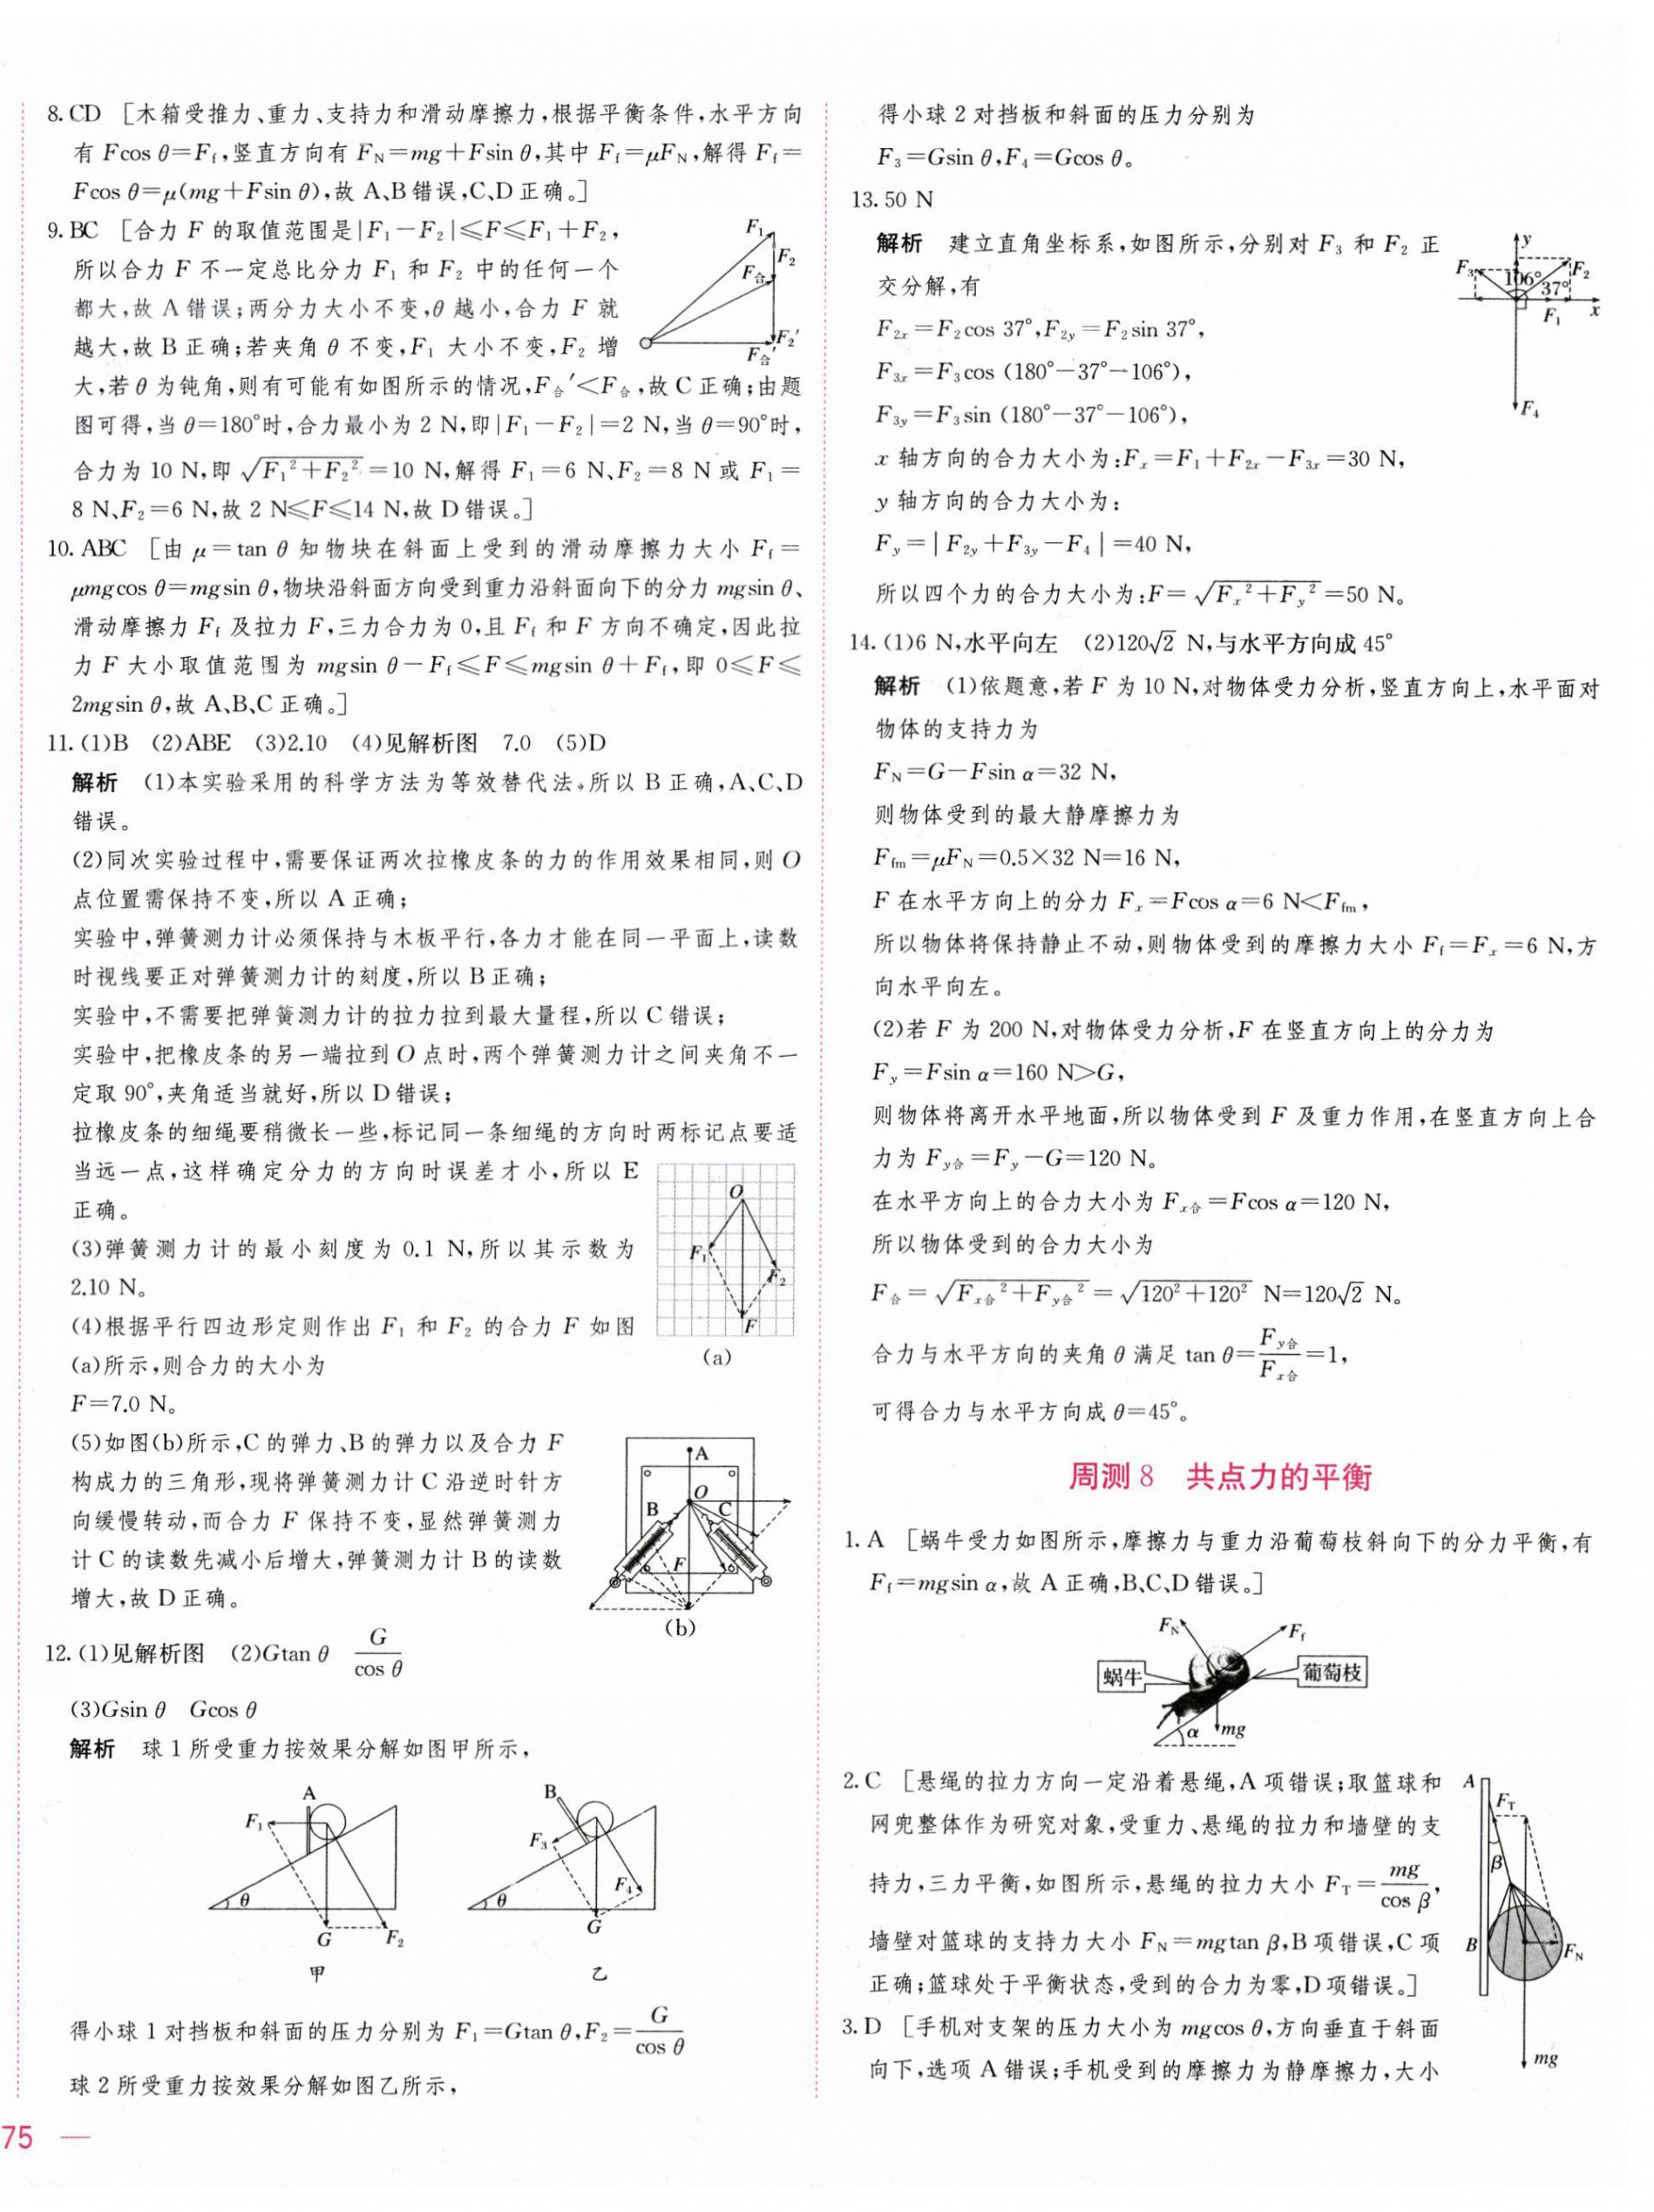 8. CD [木箱受推力、重力、支持力和滑动摩擦力,根据平衡条件,水平方向
有 Fcos θ=Ff,竖直方向有 FN=mg+Fsin θ,其中 Ff=μFN,解得 Ff=
Fcos θ=μ(mg+Fsin θ),故 A、B 错误,C、D 正确。]
9. BC [合力 F 的取值范围是|F1-F2|≤F≤F1+F2,
所以合力 F 不一定总比分力 F1 和 F2 中的任何一个
都大,故 A 错误;两分力大小不变,θ 越小,合力 F 就
越大,故 B 正确;若夹角 θ 不变,F1 大小不变,F2 增
大,若 θ 为钝角,则有可能有如图所示的情况,F合′<F合,故 C 正确;由题
图可得,当 θ=180°时,合力最小为 2 N,即|F1-F2|=2 N,当 θ=90°时,
合力为 10 N,即 √(F1²+F2²)=10 N,解得 F1=6 N、F2=8 N 或 F1=
8 N、F2=6 N,故 2 N≤F≤14 N,故 D 错误。]
F1
F2
F合
F2′
F合′
10. ABC [由 μ=tan θ 知物块在斜面上受到的滑动摩擦力大小 Ff=
μmgcos θ=mgsin θ,物块沿斜面方向受到重力沿斜面向下的分力 mgsin θ、
滑动摩擦力 Ff 及拉力 F,三力合力为 0,且 Ff 和 F 方向不确定,因此拉
力 F 大小取值范围为 mgsin θ-Ff≤F≤mgsin θ+Ff,即 0≤F≤
2mgsin θ,故 A、B、C 正确。]
11. (1)B (2)ABE (3)2.10 (4)见解析图 7.0 (5)D
解析 (1)本实验采用的科学方法为等效替代法。所以 B 正确,A、C、D
错误。
(2)同次实验过程中,需要保证两次拉橡皮条的力的作用效果相同,则 O
点位置需保持不变,所以 A 正确;
实验中,弹簧测力计必须保持与木板平行,各力才能在同一平面上,读数
时视线要正对弹簧测力计的刻度,所以 B 正确;
实验中,不需要把弹簧测力计的拉力拉到最大量程,所以 C 错误;
实验中,把橡皮条的另一端拉到 O 点时,两个弹簧测力计之间夹角不一
定取 90°,夹角适当就好,所以 D 错误;
拉橡皮条的细绳要稍微长一些,标记同一条细绳的方向时两标记点要适
当远一点,这样确定分力的方向时误差才小,所以 E
正确。
(3)弹簧测力计的最小刻度为 0.1 N,所以其示数为
2.10 N。
(4)根据平行四边形定则作出 F1 和 F2 的合力 F 如图
(a)所示,则合力的大小为
F=7.0 N。
O
F1
F2
F
(a)
(5)如图(b)所示,C 的弹力、B 的弹力以及合力 F
构成力的三角形,现将弹簧测力计 C 沿逆时针方
向缓慢转动,而合力 F 保持不变,显然弹簧测力
计 C 的读数先减小后增大,弹簧测力计 B 的读数
增大,故 D 正确。
A
O
B
C
F
(b)
12. (1)见解析图 (2)Gtan θ G/cos θ
(3)Gsin θ Gcos θ
解析 球 1 所受重力按效果分解如图甲所示,
A
F1
θ
G
F2
甲
B
F3
F4
θ
G
乙
得小球 1 对挡板和斜面的压力分别为 F1=Gtan θ,F2=G/cos θ
球 2 所受重力按效果分解如图乙所示,
75 —
得小球 2 对挡板和斜面的压力分别为
F3=Gsin θ,F4=Gcos θ。
13. 50 N
解析 建立直角坐标系,如图所示,分别对 F3 和 F2 正
交分解,有
F2x=F2cos 37°,F2y=F2sin 37°,
F3x=F3cos (180°-37°-106°),
F3y=F3sin (180°-37°-106°),
x 轴方向的合力大小为:Fx=F1+F2x-F3x=30 N,
y 轴方向的合力大小为:
Fy=|F2y+F3y-F4|=40 N,
所以四个力的合力大小为:F=√(Fx²+Fy²)=50 N。
y
F3
106°
F2
37°
F1
x
F4
14. (1)6 N,水平向左 (2)120√2 N,与水平方向成 45°
解析 (1)依题意,若 F 为 10 N,对物体受力分析,竖直方向上,水平面对
物体的支持力为
FN=G-Fsin α=32 N,
则物体受到的最大静摩擦力为
Ffm=μFN=0.5×32 N=16 N,
F 在水平方向上的分力 Fx=Fcos α=6 N<Ffm,
所以物体将保持静止不动,则物体受到的摩擦力大小 Ff=Fx=6 N,方
向水平向左。
(2)若 F 为 200 N,对物体受力分析,F 在竖直方向上的分力为
Fy=Fsin α=160 N>G,
则物体将离开水平地面,所以物体受到 F 及重力作用,在竖直方向上合
力为 Fy合=Fy-G=120 N。
在水平方向上的合力大小为 Fx合=Fcos α=120 N,
所以物体受到的合力大小为
F合=√(Fx合²+Fy合²)=√(120²+120²) N=120√2 N。
合力与水平方向的夹角 θ 满足 tan θ=Fy合/Fx合=1,
可得合力与水平方向成 θ=45°。
周测 8 共点力的平衡
1. A [蜗牛受力如图所示,摩擦力与重力沿葡萄枝斜向下的分力平衡,有
Ff=mgsin α,故 A 正确,B、C、D 错误。]
FN
Ff
蜗牛
葡萄枝
α
mg
2. C [悬绳的拉力方向一定沿着悬绳,A 项错误;取篮球和
网兜整体作为研究对象,受重力、悬绳的拉力和墙壁的支
持力,三力平衡,如图所示,悬绳的拉力大小 FT=mg/cos β,
墙壁对篮球的支持力大小 FN=mgtan β,B 项错误,C 项
正确;篮球处于平衡状态,受到的合力为零,D 项错误。]
A
FT
β
B
FN
mg
3. D [手机对支架的压力大小为 mgcos θ,方向垂直于斜面
向下,选项 A 错误;手机受到的摩擦力为静摩擦力,大小